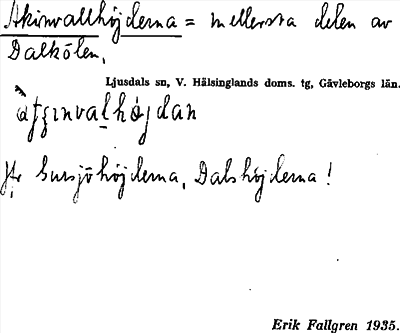 Akirvallhöjderna = mellersta delen av
Dalkölen.
Ljusdals sn, V. Hälsinglands doms. tg, Gävleborgs län.
Jfr Sursjöhöjderna, Dalshöjderna!
Erik Fallgren 1935.